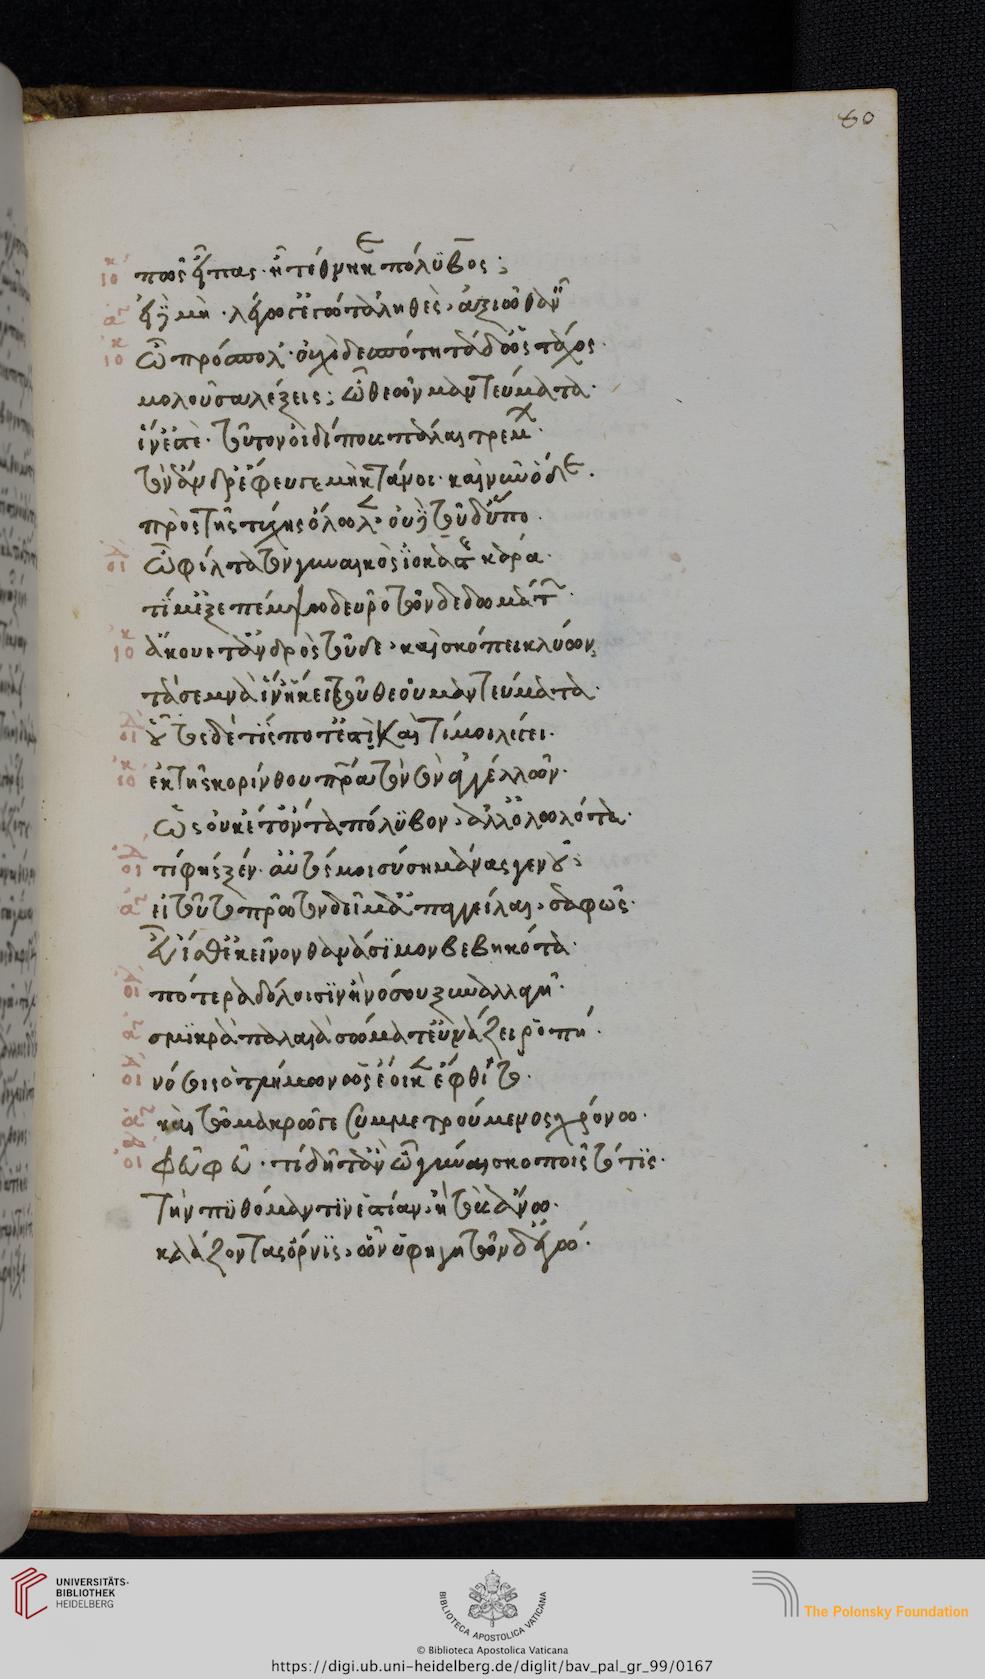 60
ἰο πῶς εἶπας· ἦ τέθνηκε πόλυβος;
ἄγ εἰ δὲ μὴ· λέγω γ' ἐγὼ τἀληθὲς, ἀξιῶ θανεῖν
ἰο ὦ πρόσπολ'· οὐχὶ δεσπότη τάδ' ὡς τάχος·
μολοῦσα λέξεις; ὦ θεῶν μαντεύματα·
ἵν' ἐστέ· τοῦτον οἰδίπους πάλαι τρέμων·
τὸν ἄνδρ' ἔφευγε μὴ κτάνοι· καὶ νῦν ὅδε.
πρὸς τῆς τύχης ὄλωλεν· οὐδὲ τοῦδ' ὕπο.
οἰ ὦ φίλτατον γυναικὸς ἰοκάστης κάρα·
τί μ' ἐξεπέμψω δεῦρο τῶνδε δωμάτων·
ἰο ἄκουε τἀνδρὸς τοῦδε, καὶ σκόπει κλύων,
τὰ σέμν' ἵν' ἥκει τοῦ θεοῦ μαντεύματα·
οἰ οὗτος δὲ τίς ποτ' ἐστὶ καὶ τί μοι λέγει·
ἰο ἐκ τῆς κορίνθου πατέρα τὸν σὸν ἀγγέλλων·
ὡς οὐκέτ' ὄντα πόλυβον, ἀλλ' ὀλωλότα·
οἰ τί φής ξέν'· αὐτός μοι σὺ σημάνας γενοῦ·
ἄγ εἰ τοῦτο πρῶτον δεῖ μ' ἀπαγγεῖλαι, σαφῶς·
εὖ ἴσθ' ἐκεῖνον θανάσιμον βεβηκότα·
οἰ πότερα δόλοισιν ἢ νόσου ξυναλλαγῇ·
ἄγ σμικρὰ παλαιὰ σώματ' εὐνάζει ῥοπή·
οἰ νόσοις ὁ τλήμων ὡς ἔοικεν ἔφθιτο·
ἄγ καὶ τῷ μακρῷ γε συμμετρούμενος χρόνῳ·
οἰ φεῦ φεῦ· τί δῆτ' ἂν ὦ γύναι σκοποῖτό τις·
τὴν πυθόμαντιν ἑστίαν, ἢ τοὺς ἄνω·
κλάζοντας ὄρνις, ὧν ὑφηγητῶν δ' ἐγώ·
UNIVERSITÄTS-
BIBLIOTHEK
HEIDELBERG
BIBLIOTECA APOSTOLICA VATICANA
The Polonsky Foundation
© Biblioteca Apostolica Vaticana
https://digi.ub.uni-heidelberg.de/diglit/bav_pal_gr_99/0167